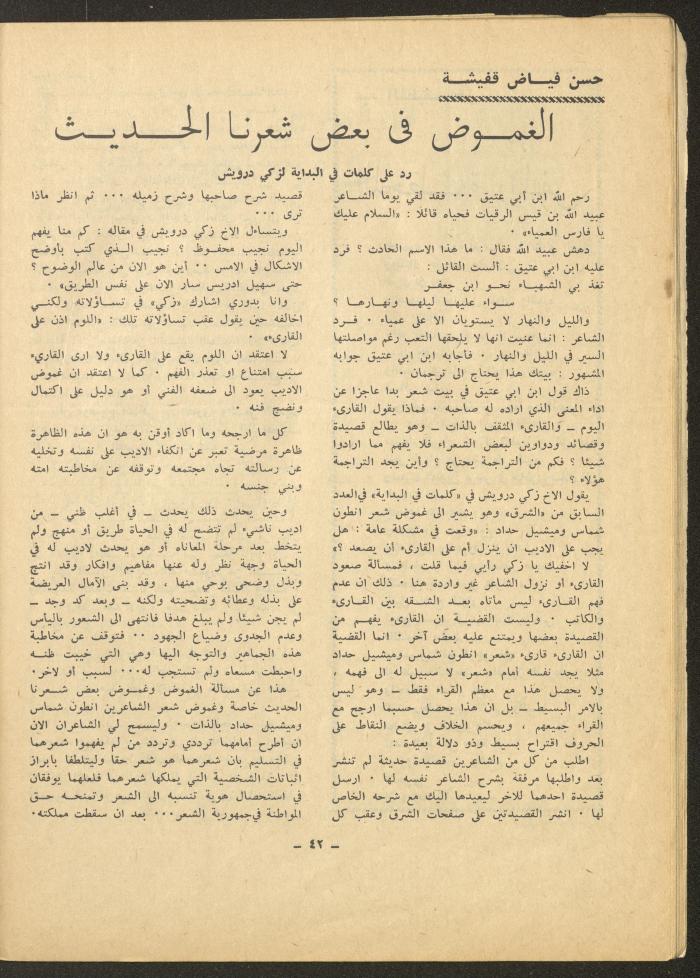 حسن فياض قفيشة
الغموض في بعض شعرنا الحديث
رد على كلمات في البداية لزكي درويش
رحم الله ابن أبي عتيق ٠٠٠ فقد لقي يوما الشاعر
عبيد الله بن قيس الرقيات فحياه قائلا : «السلام عليك
يا فارس العمياء» ٠
دهش عبيد الله فقال : ما هذا الاسم الحادث ؟ فرد
عليه ابن ابي عتيق : ألست القائل :
تغذ بي الشهباء نحو ابن جعفر
سواء عليها ليلها ونهارها ؟
والليل والنهار لا يستويان الا على عمياء ٠ فرد
الشاعر : انما عنيت انها لا يلحقها التعب رغم مواصلتها
السير في الليل والنهار ٠ فأجابه ابن ابي عتيق جوابه
المشهور : بيتك هذا يحتاج الى ترجمان ٠
ذاك قول ابن ابي عتيق في بيت شعر بدا عاجزا عن
اداء المعنى الذي اراده له صاحبه ٠ فماذا يقول القارىء
اليوم – والقارىء المثقف بالذات – وهو يطالع قصيدة
وقصائد ودواوين لبعض الشعراء فلا يفهم مما ارادوا
شيئا ؟ فكم من التراجمة يحتاج ؟ وأين يجد التراجمة
هؤلاء ؟
يقول الاخ زكي درويش في «كلمات في البداية» في العدد
السابق من «الشرق» وهو يشير الى غموض شعر انطون
شماس وميشيل حداد : «وقعت في مشكلة عامة : هل
يجب على الاديب ان ينزل أم على القارىء ان يصعد ؟»
لا اخفيك يا زكي رأيي فيما قلت ، فمسالة صعود
القارىء أو نزول الشاعر غير واردة هنا ٠ ذلك ان عدم
فهم القارىء ليس مأتاه بعد الشقه بين القارىء
والكاتب ٠ وليست القضية ان القارىء يفهم من
القصيدة بعضها ويمتنع عليه بعض آخر ٠ انما القضية
ان القارىء قارىء «شعر» انطون شماس وميشيل حداد
مثلا يجد نفسه أمام «شعر» لا سبيل له الى فهمه ،
ولا يحصل هذا مع معظم القراء فقط – وهو ليس
بالامر البسيط – بل ان هذا يحصل حسبما ارجح مع
القراء جميعهم ، ويحسم الخلاف ويضع النقاط على
الحروف اقتراح بسيط وذو دلالة بعيدة :
اطلب من كل من الشاعرين قصيدة حديثة لم تنشر
بعد واطلبها مرفقة بشرح الشاعر نفسه لها ٠ ارسل
قصيدة احدهما للاخر ليعيدها اليك مع شرحه الخاص
لها ٠ انشر القصيدتين على صفحات الشرق وعقب كل
قصيد شرح صاحبها وشرح زميله ٠٠٠ ثم انظر ماذا
ترى ٠٠٠
ويتساءل الاخ زكي درويش في مقاله : كم منا يفهم
اليوم نجيب محفوظ ؟ نجيب الذي كتب باوضح
الاشكال في الامس ٠٠ أين هو الان من عالم الوضوح ؟
حتى سهيل ادريس سار الان على نفس الطريق» ٠
وانا بدوري اشارك «زكي» في تساؤلاته ولكني
اخالفه حين يقول عقب تساؤلاته تلك : «اللوم اذن على
القارىء» ٠
لا اعتقد ان اللوم يقع على القارىء ولا ارى القارىء
سبب امتناع او تعذر الفهم ٠ كما لا اعتقد ان غموض
الاديب يعود الى ضعفه الفني أو هو دليل على اكتمال
ونضج فنه ٠
كل ما ارجحه وما اكاد أوقن به هو ان هذه الظاهرة
ظاهرة مرضية تعبر عن انكفاء الاديب على نفسه وتخليه
عن رسالته تجاه مجتمعه وتوقفه عن مخاطبته امته
وبني جنسه ٠
وحين يحدث ذلك يحدث – في أغلب ظني – من
اديب ناشىء لم تتضح له في الحياة طريق أو منهج ولم
يتخط بعد مرحلة المعاناه أو هو يحدث لاديب له في
الحياة وجهة نظر وله عنها مفاهيم وافكار وقد انتج
وبذل وضحى بوحي منها ، وقد بنى الآمال العريضة
على بذله وعطائه وتضحيته ولكنه – وبعد كد وجد –
لم يجن شيئا ولم يبلغ هدفا فانتهى الى الشعور باليأس
وعدم الجدوى وضياع الجهود ٠٠ فتوقف عن مخاطبة
هذه الجماهير والتوجه اليها وهي التي خيبت ظنه
واحبطت مسعاه ولم تستجب له٠٠٠ لسبب أو لاخر٠
هذا عن مسألة الغموض وغموض بعض شعرنا
الحديث خاصة وغموض شعر الشاعرين انطون شماس
وميشيل حداد بالذات ٠ وليسمح لي الشاعران الان
ان أطرح أمامهما ترددي وتردد من لم يفهموا شعرهما
في التسليم بان شعرهما هو شعر حقا وليتلطفا بابراز
اثباتات الشخصية التي يملكها شعرهما فلعلهما يوفقان
في استحصال هوية تنسبه الى الشعر وتمنحه حق
المواطنة في جمهورية الشعر٠٠٠ بعد ان سقطت مملكته٠
– ٤٢ –